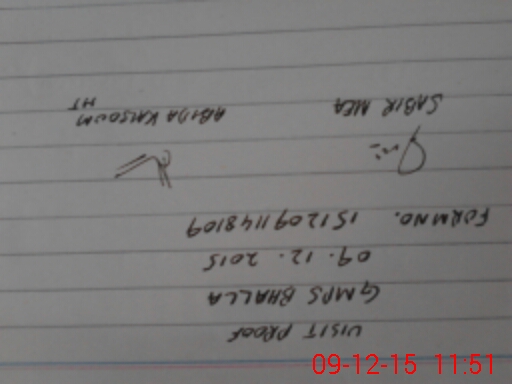 VISIT PROOF
GMPS BHALLA
09.12.2015
FORM NO. 1512091148109
SABIR MEA ABIDA KALSOUM
HT
09-12-15 11:51